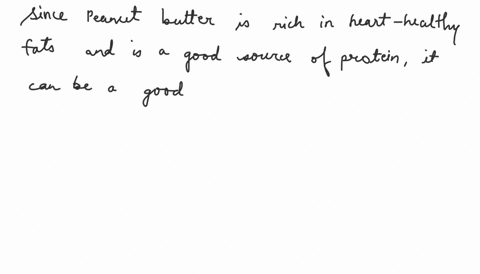 since Peanut butter is rich in heart-healthy
fats and is a good source of protein, it
can be a good